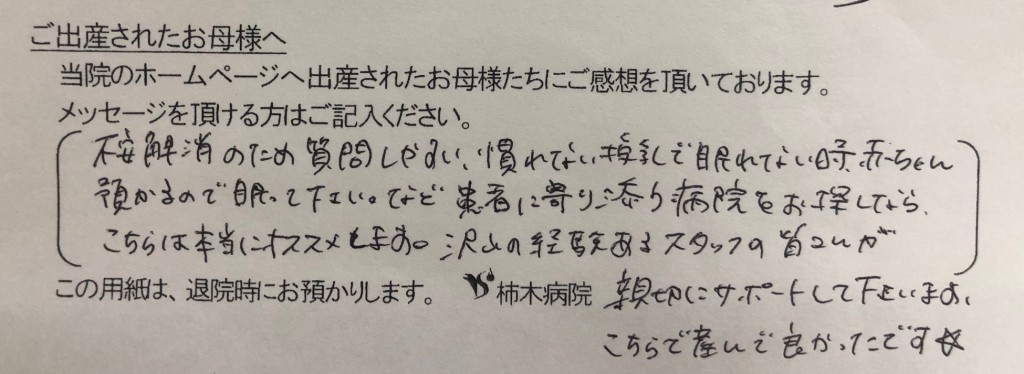 ご出産されたお母様へ
当院のホームページへ出産されたお母様たちにご感想を頂いております。
メッセージを頂ける方はご記入ください。
不安解消のため質問しやすい、慣れてない授乳で眠れてない時、赤ちゃん
預かるので眠って下さい。など患者に寄り添う病院をお探しなら、
こちらは本当にオススメします。沢山の経験あるスタッフの皆さんが
この用紙は、退院時にお預かりします。 柿木病院 親切にサポートして下さいます。
こちらで産んで良かったです☆